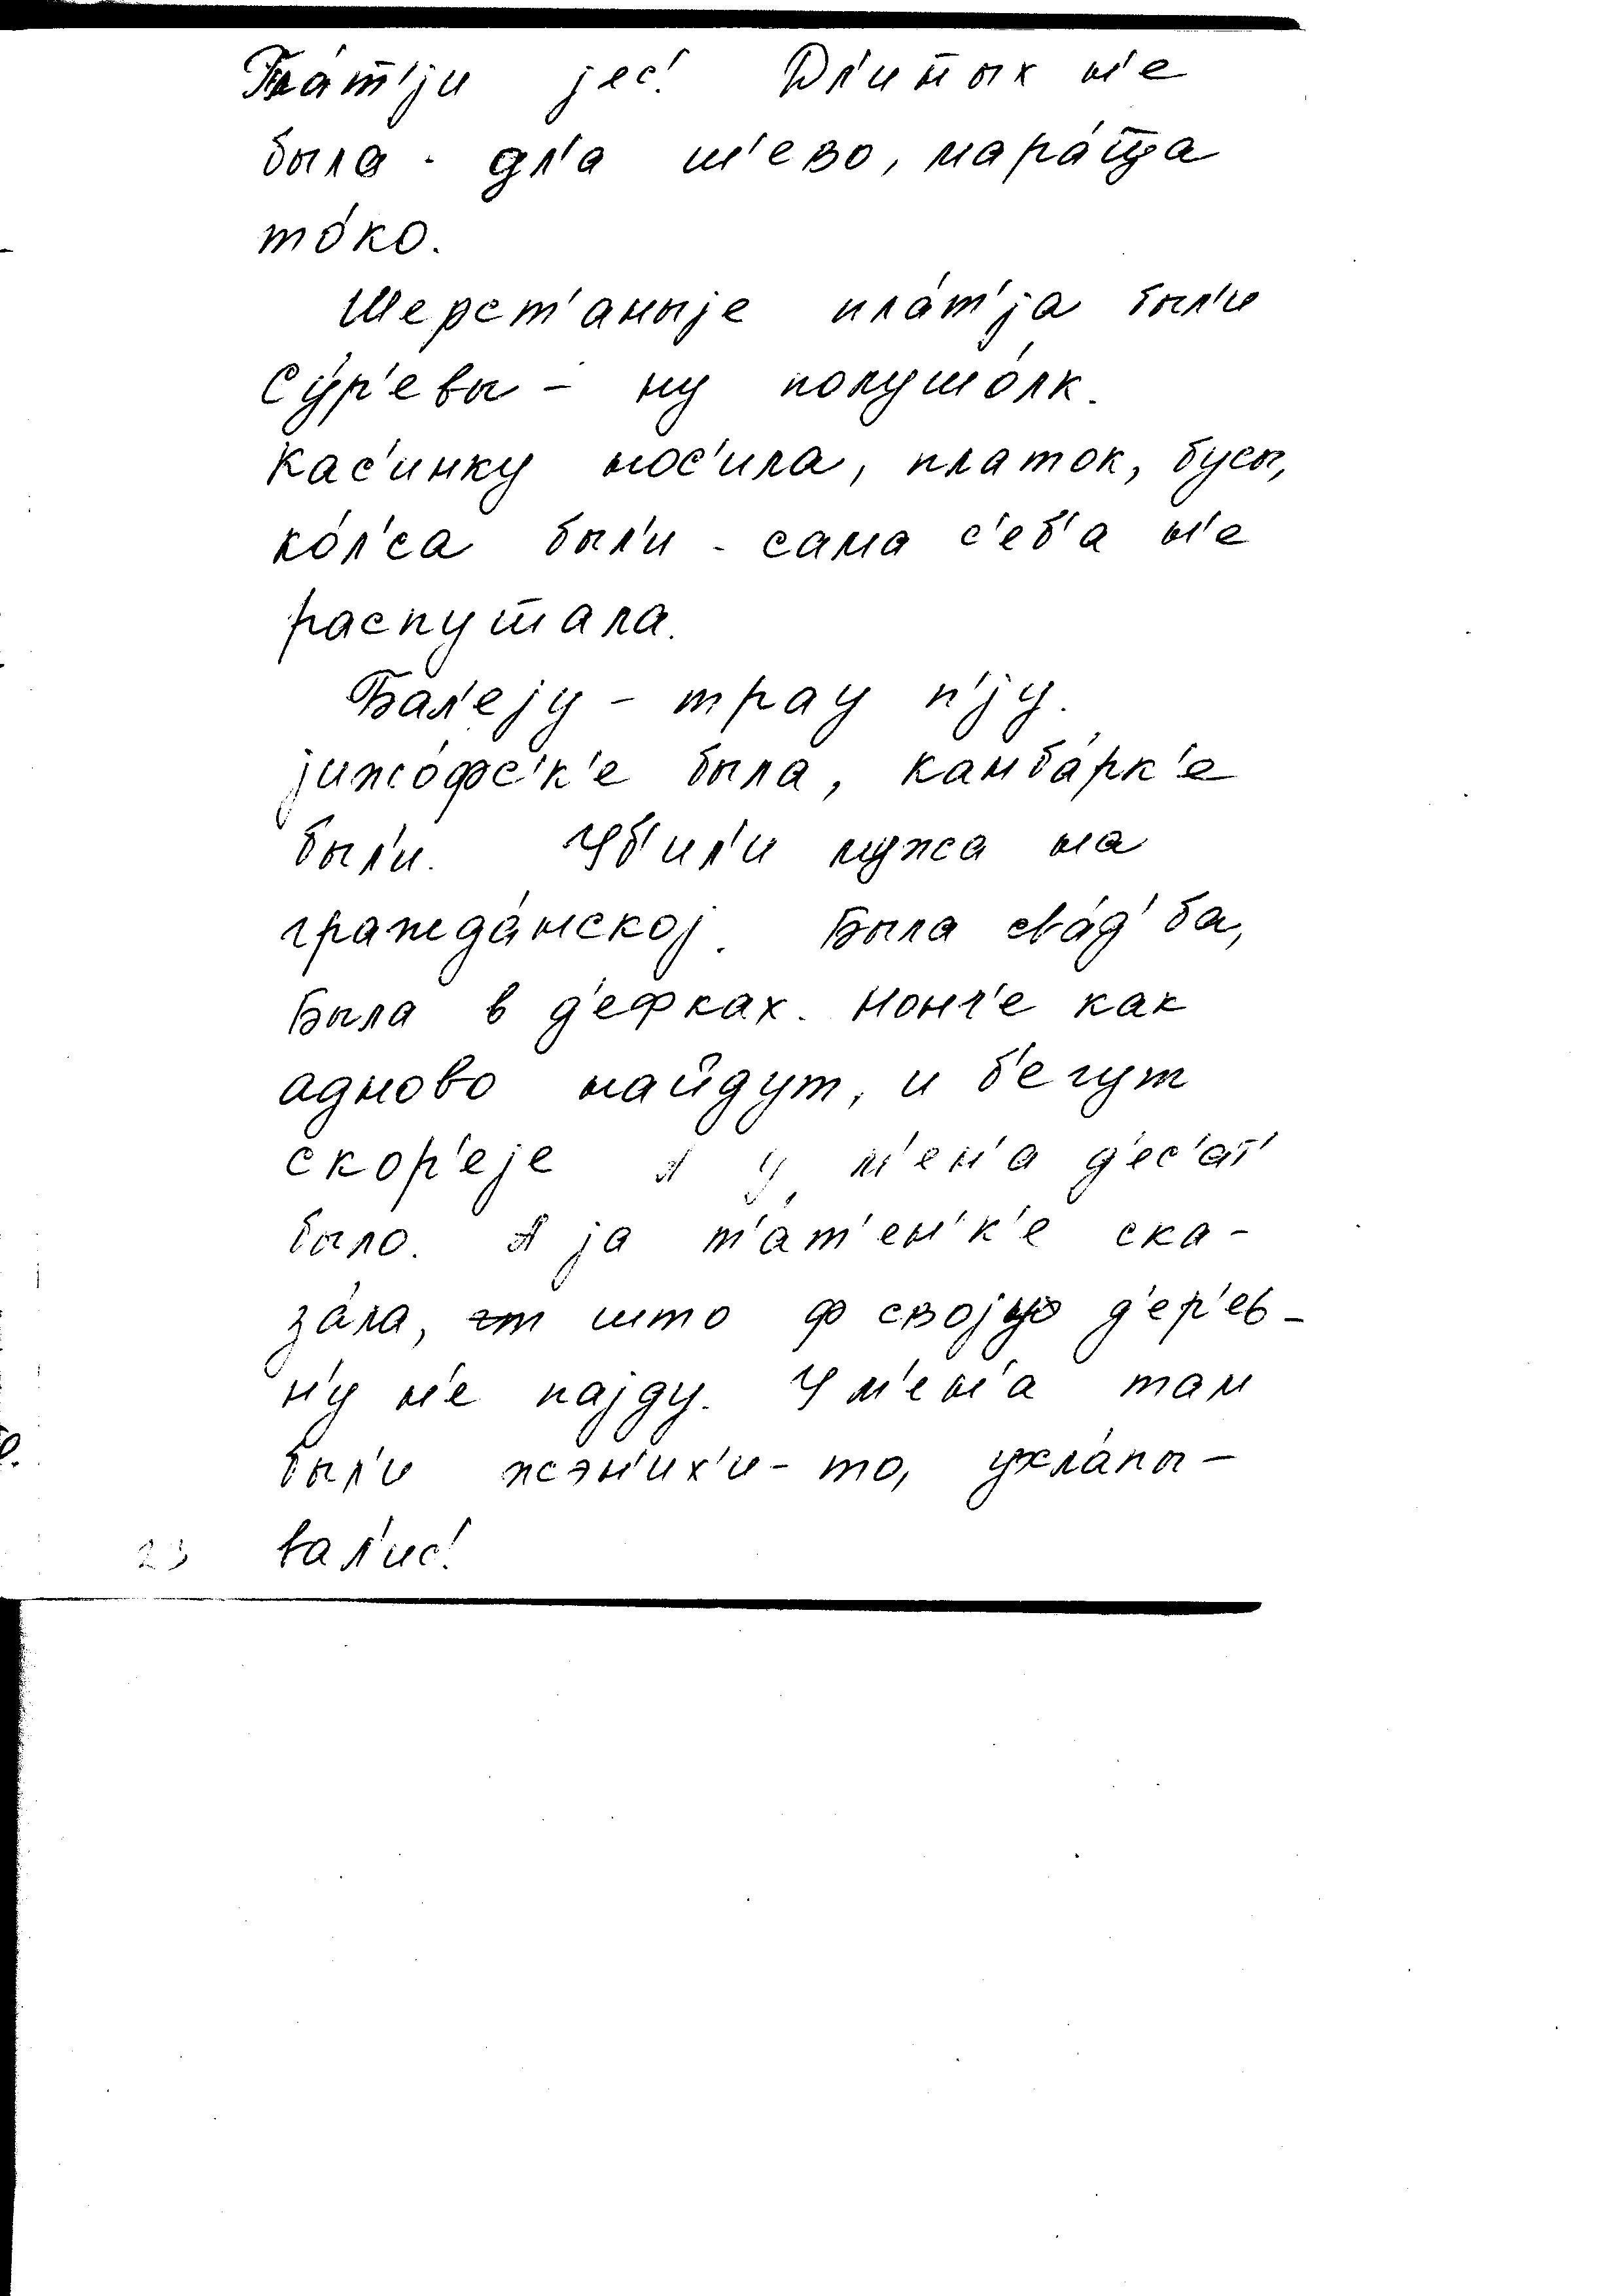 Пла́т'jи jес'. Дл'ин̄ых н'е
была - дл'а ш'ево, мара́ц̄а
то́ко.
Шерст'аныjе пла́т'jа был'и
Су́р'евы - ну полушо́лк.
Кас'инку нос'ила, платок, бусы,
ко́л'са был'и - сама с'еб'а н'е
распуш̄ала.
Бал'еjу - трау п'jу.
jижо́фс'к'е была, камба́рк'е
был'и. Уб'ил'и мужа на
гражда́нскоj. Была сва́д'ба,
Была в д'ефках. Нонч'е как
адново найдут, и б'егут
скор'еjе А у м'ен'а д'ес'ат'
было. А jа т'ат'ен'к'е ска-
за́ла, што ф своjу д'ер'ев-
н'у н'е паjду. У м'ен'а там
был'и жэн'их'и-то, ухла́пы-
вал'ис'.
23